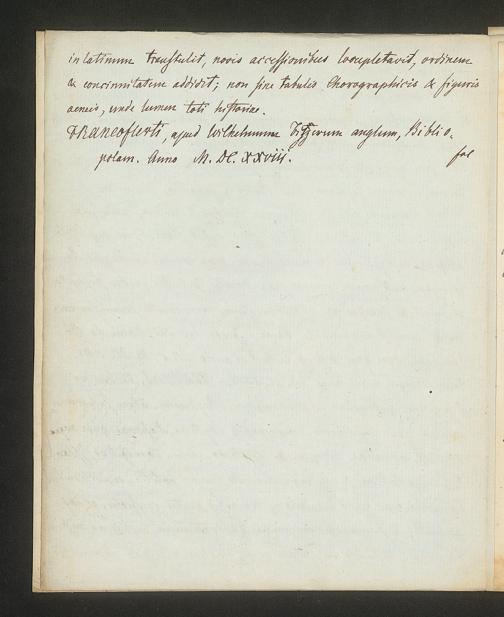 in latinum transtulit, novis accessionibus locupletavit, ordinem
& concinnitatem addidit; non sine tabulis Chorographicis & figuris
aeneis, unde lumen toti historiae.
Francofurti, apud Wilhelmum Fitzerum anglum, Biblio-
polam. Anno M. DC. xxviii. fol